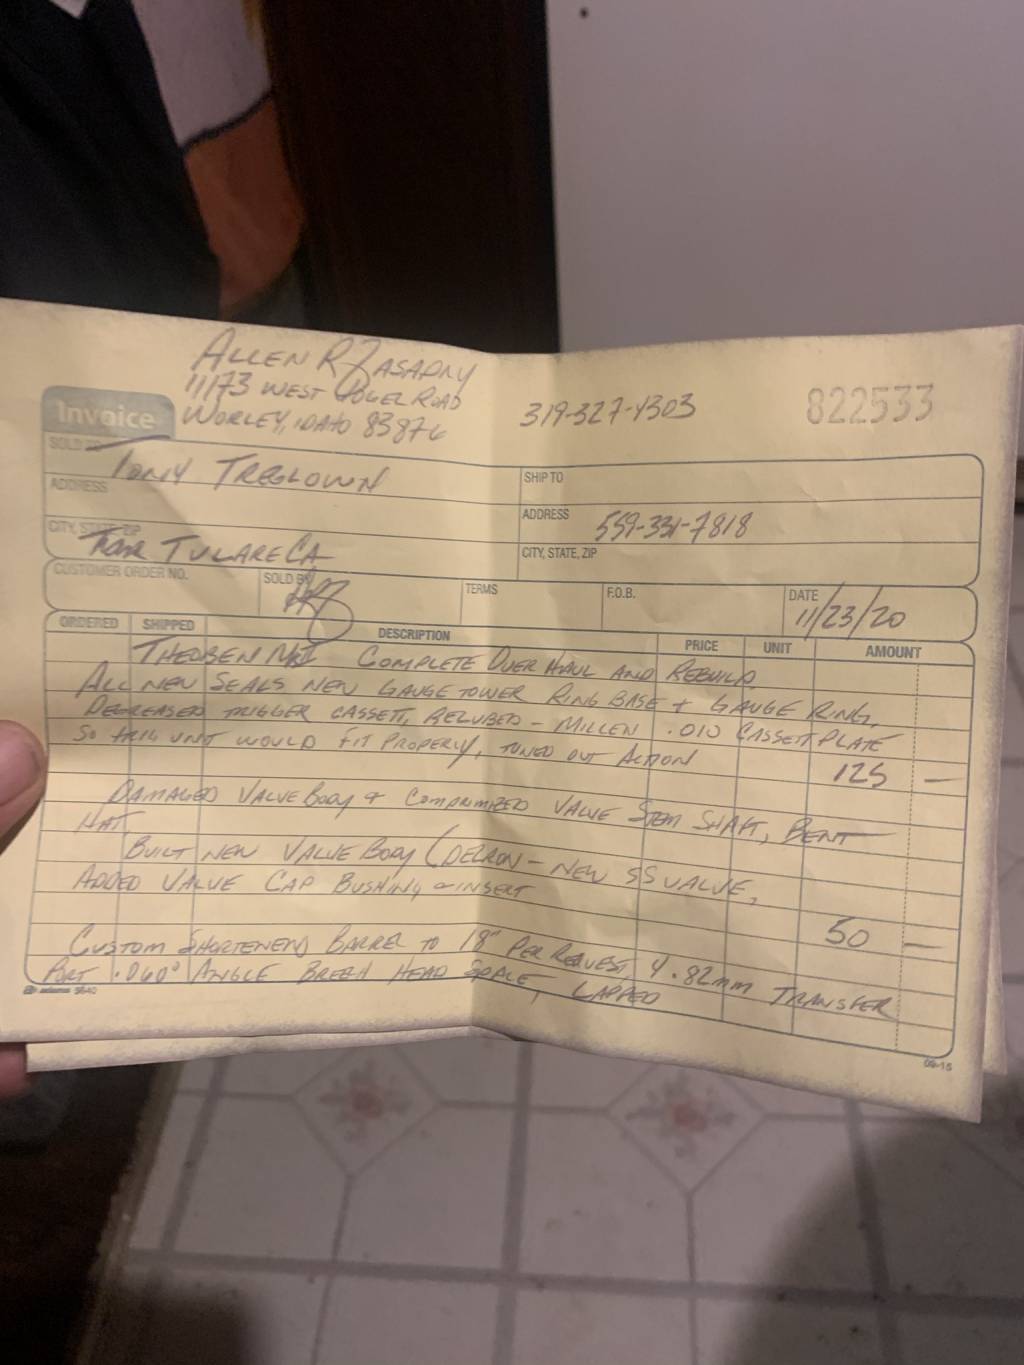 ALLEN R ZASADNY
11173 WEST VOGEL ROAD
WORLEY, IDAHO 83876
319-327-4303
822533
Invoice
SOLD TO TONY TREGLOWN
SHIP TO
ADDRESS
ADDRESS 559-331-7818
CITY, STATE, ZIP TULARE CA
CITY, STATE, ZIP
CUSTOMER ORDER NO. SOLD BY TERMS F.O.B. DATE 11/23/20
ORDERED SHIPPED DESCRIPTION PRICE UNIT AMOUNT
THEOBEN MKI COMPLETE OVER HAUL AND REBUILD
ALL NEW SEALS NEW GAUGE TOWER RING BASE + GAUGE RING,
DEGREASED TRIGGER CASSETT, RELUBED - MILLEN .010 CASSETT PLATE
SO UNIT WOULD FIT PROPERLY, TUNED OUT ACTION 125 —
DAMAGED VALVE BODY + COMPRIMIZED VALVE STEM SHAFT, BENT
HAT,
BUILT NEW VALVE BODY (DELRON - NEW SS VALVE,
ADDED VALVE CAP BUSHING + INSERT 50 —
CUSTOM SHORTENEND BARREL TO 18" PER REQUEST, 4.82mm TRANSFER
PORT .060° ANGLE BREEH HEAD SPACE, LAPPED
adams 5840
09-15